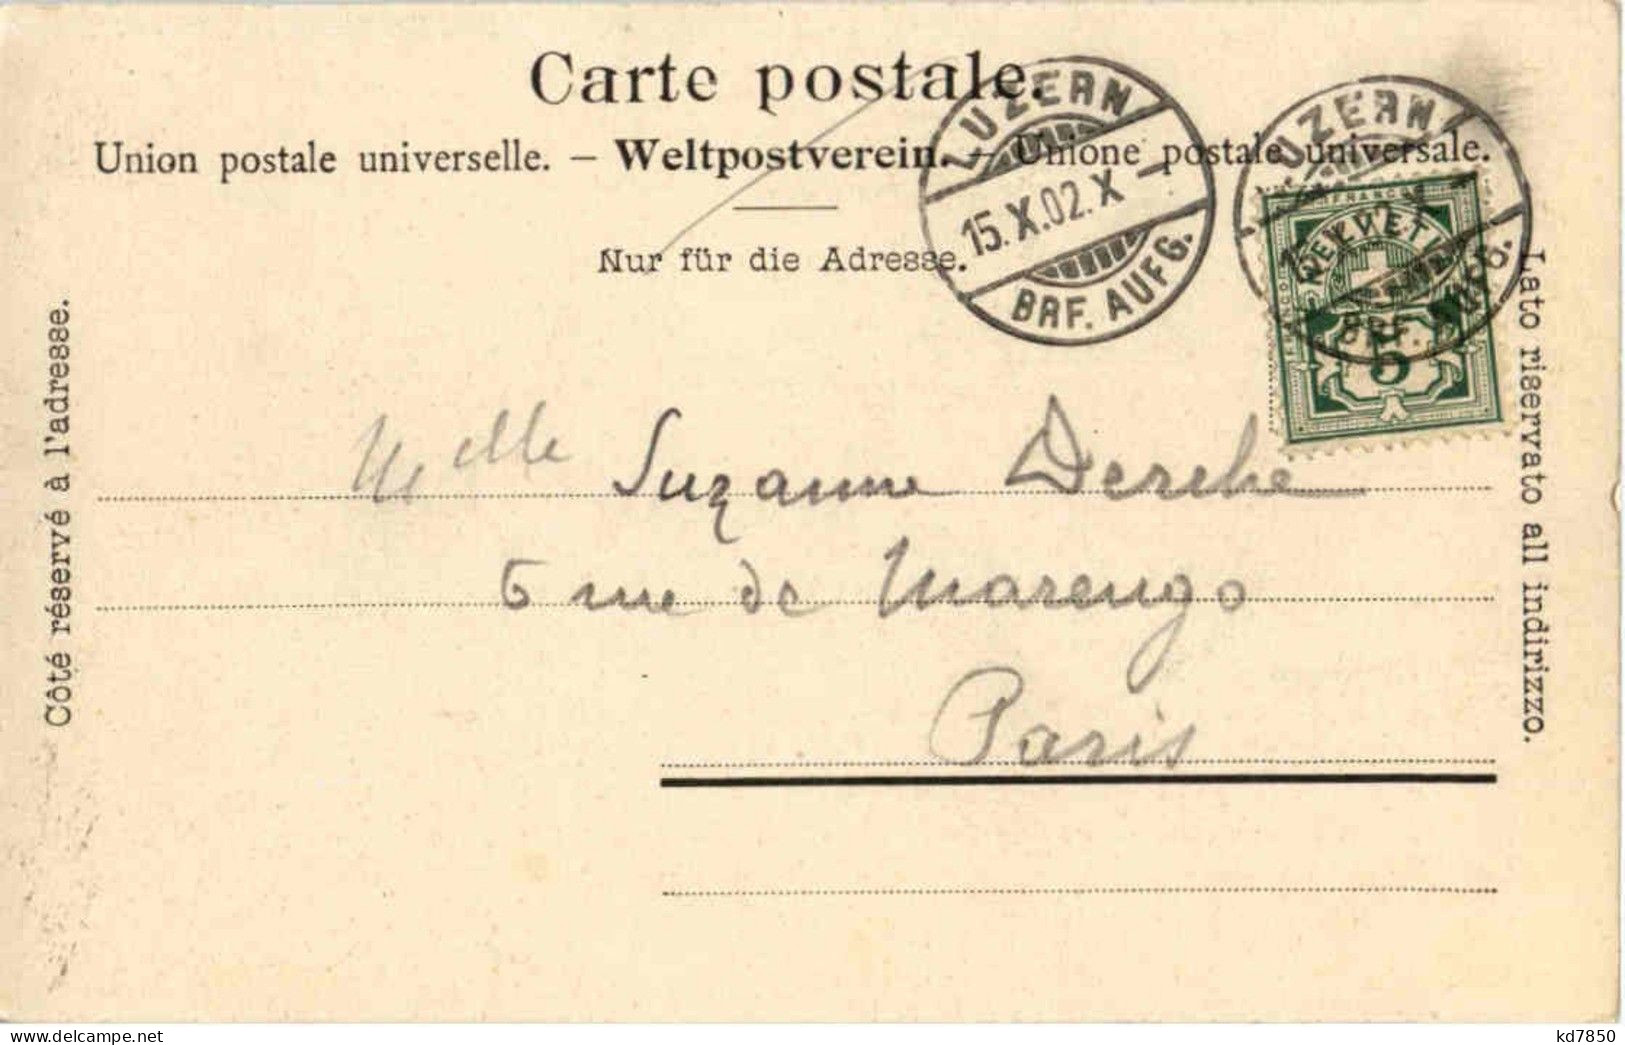 Carte postale.
Union postale universelle. – Weltpostverein. – Unione postale universale.
Nur für die Adresse.
LUZERN
15.X.02.X
BRF. AUFG.
LUZERN
BRF. AUFG.
FRANCO
HELVETIA
5
Côté réservé à l'adresse.
Lato riservato all indirizzo.
Melle Suzanne Derche
5 rue de Marengo
Paris
kd7850